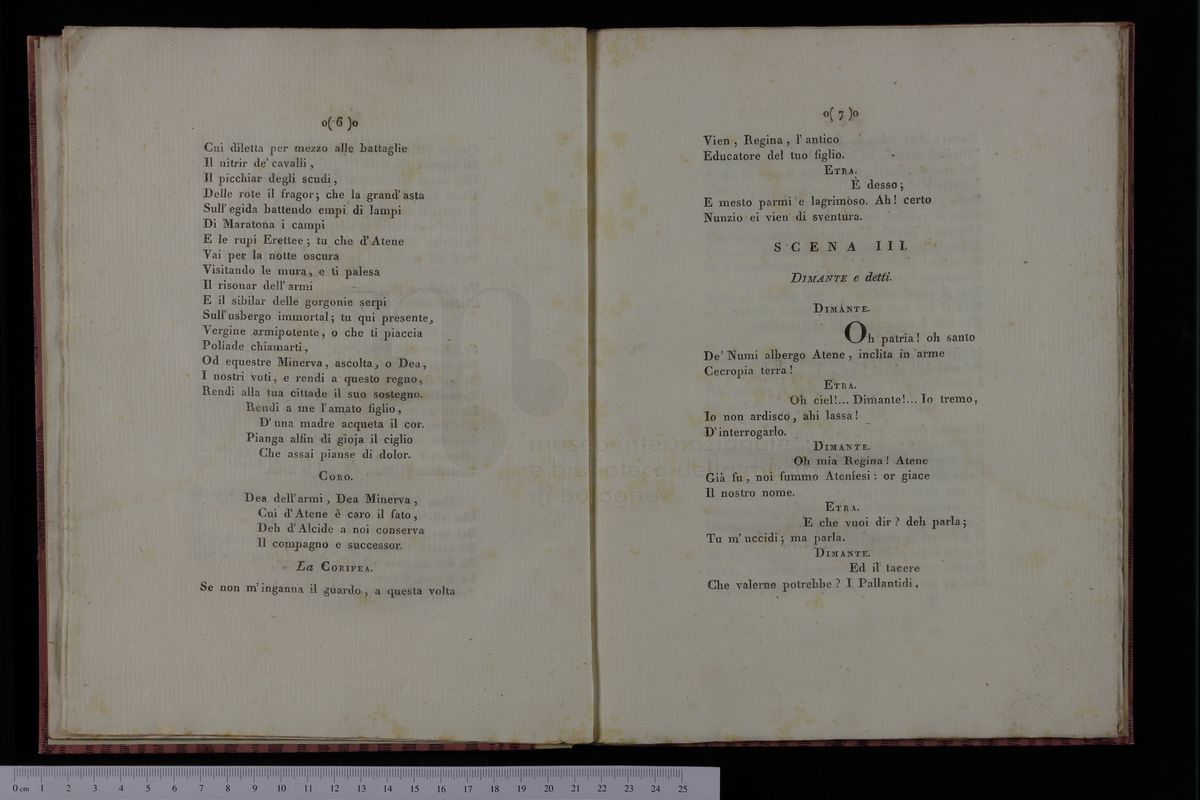 o( 6 )o
Cui diletta per mezzo alle battaglie
Il nitrir de' cavalli ,
Il picchiar degli scudi ,
Delle rote il fragor; che la grand' asta
Sull' egida battendo empi di lampi
Di Maratona i campi
E le rupi Erettee ; tu che d'Atene
Vai per la notte oscura
Visitando le mura, e ti palesa
Il risonar dell' armi
E il sibilar delle gorgonie serpi
Sull'usbergo immortal; tu qui presente,
Vergine armipotente, o che ti piaccia
Poliade chiamarti ,
Od equestre Minerva, ascolta, o Dea,
I nostri voti, e rendi a questo regno,
Rendi alla tua cittade il suo sostegno.
Rendi a me l'amato figlio,
D'una madre acqueta il cor.
Pianga alfin di gioja il ciglio
Che assai pianse di dolor.
CORO.
Dea dell'armi, Dea Minerva,
Cui d'Atene è caro il fato,
Deh d'Alcide a noi conserva
Il compagno e successor.
La CORIFEA.
Se non m'inganna il guardo, a questa volta
o( 7 )o
Vien , Regina , l' antico
Educatore del tuo figlio.
ETRA.
È desso;
E mesto parmi e lagrimoso. Ah! certo
Nunzio ei vien di sventura.
SCENA III.
DIMANTE e detti.
DIMANTE.
Oh patria! oh santo
De' Numi albergo Atene, inclita in arme
Cecropia terra!
ETRA.
Oh ciel!... Dimante!... Io tremo,
Io non ardisco, ahi lassa!
D'interrogarlo.
DIMANTE.
Oh mia Regina! Atene
Già fu, noi fummo Ateniesi: or giace
Il nostro nome.
ETRA.
E che vuoi dir? deh parla;
Tu m'uccidi; ma parla.
DIMANTE.
Ed il tacere
Che valerne potrebbe? I Pallantidi,
museo internazionale
e biblioteca della musica
di bologna
0 cm 1 2 3 4 5 6 7 8 9 10 11 12 13 14 15 16 17 18 19 20 21 22 23 24 25